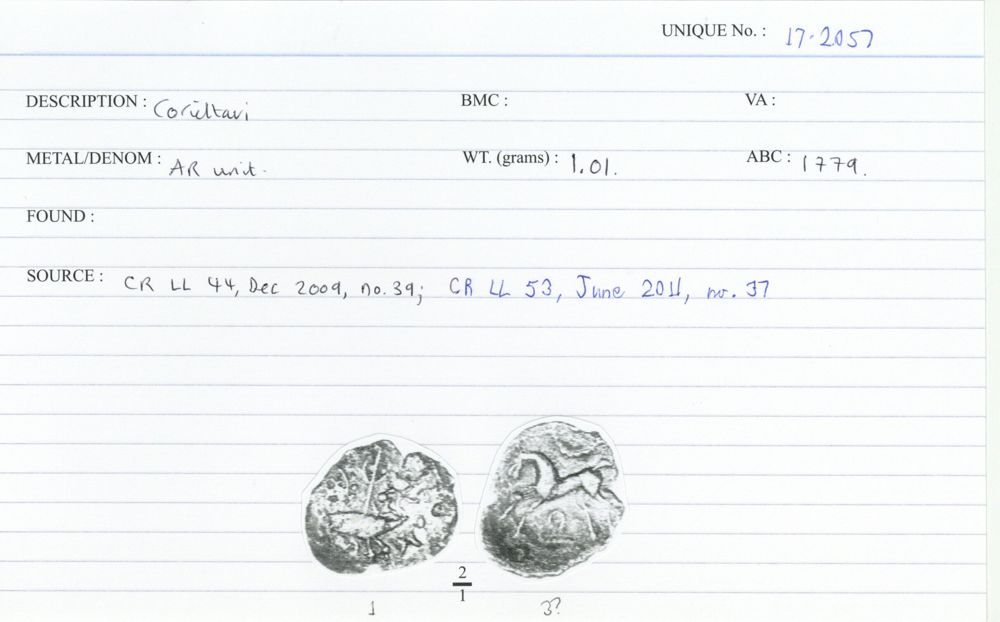 UNIQUE No. : 17.2057
DESCRIPTION : Corieltavi BMC : VA :
METAL/DENOM : AR unit. WT. (grams) : 1.01. ABC : 1779.
FOUND :
SOURCE : CR LL 44, Dec 2009, no. 39; CR LL 53, June 2011, no. 37
2
1
1 3?